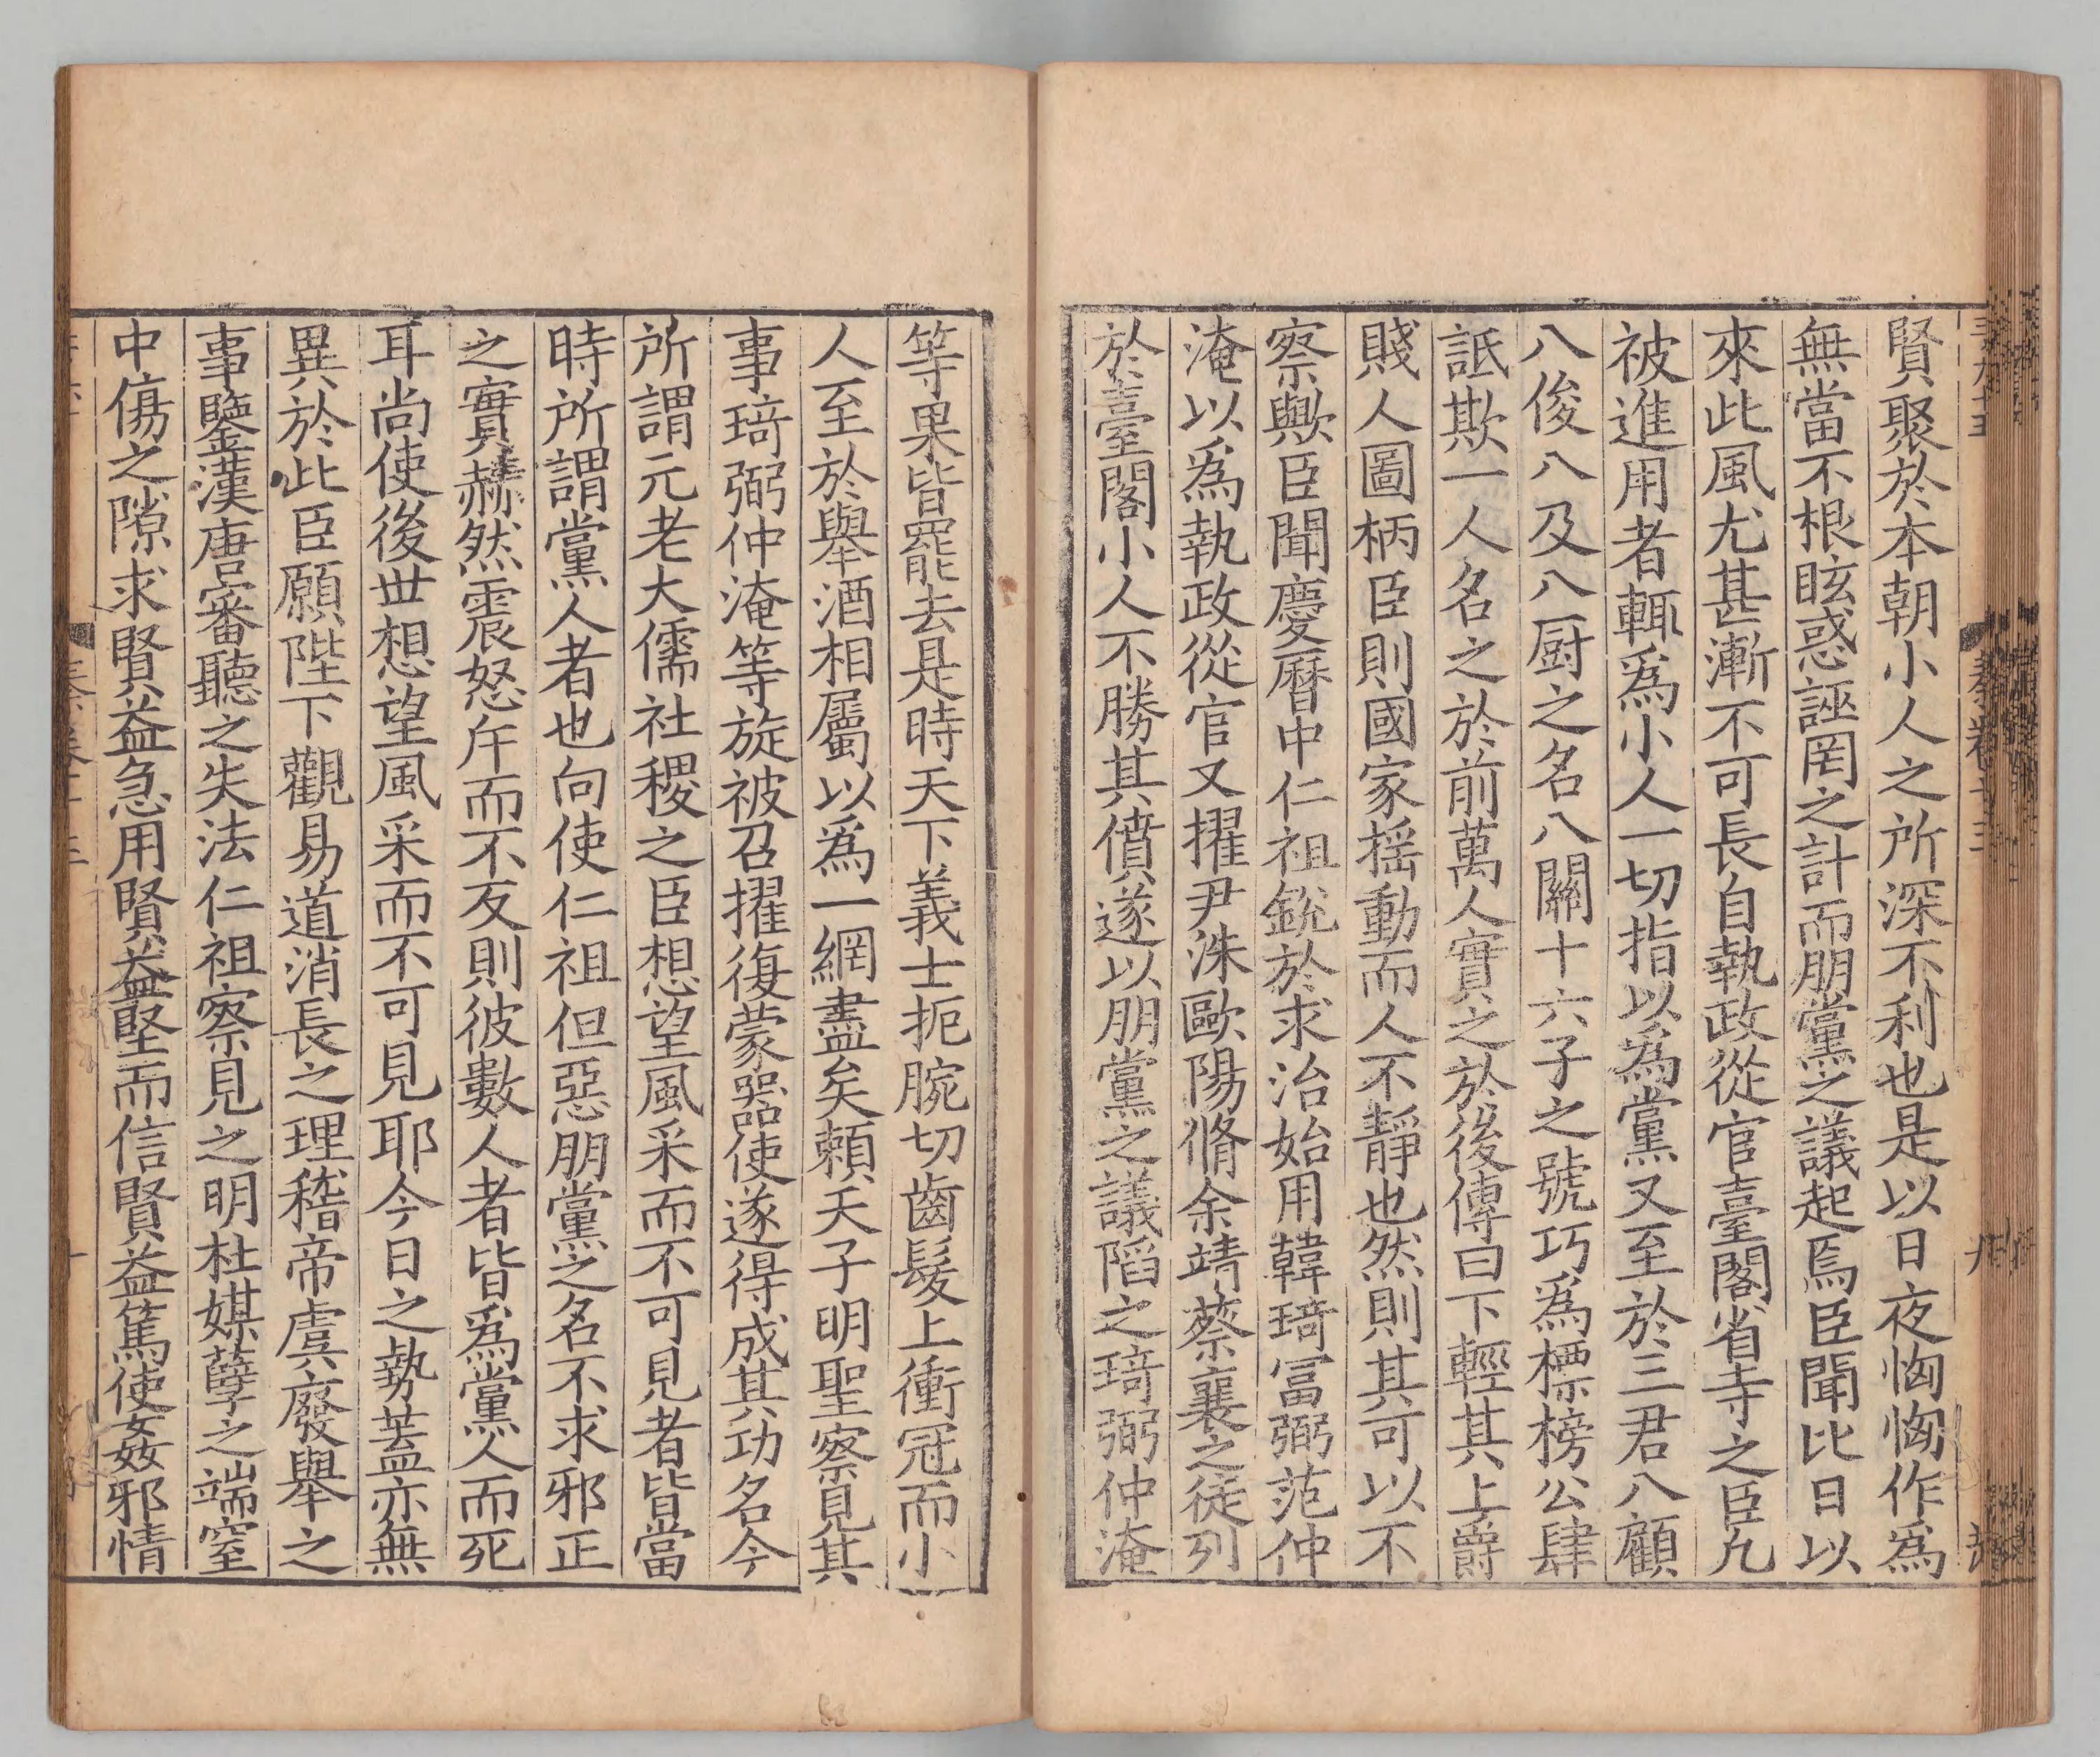 賢聚於本朝小人之所深不利也是以日夜恟恟作爲
無當不根眩惑誣罔之計而朋黨之議起焉臣聞比日以
來此風尤甚漸不可長自執政從官臺閣省寺之臣凢
被進用者輙爲小人一切指以爲黨又至於三君八顧
八俊八及八厨之名八關十六子之號巧爲標榜公肆
詆欺一人名之於前萬人實之於後傳曰下輕其上爵
賤人圖柄臣則國家揺動而人不靜也然則其可以不
察歟臣聞慶曆中仁祖銳於求治始用韓琦冨弼范仲
淹以爲執政從官又擢尹洙歐陽脩余靖蔡襄之徒列
於臺閣小人不勝其憤遂以朋黨之議陷之琦弼仲淹
等果皆罷去是時天下義士扼腕切齒髮上衝冠而小
人至於舉酒相屬以爲一網盡矣頼天子明聖察見其
事琦弼仲淹等旋被召擢復蒙器使遂得成其功名今
所謂元老大儒社稷之臣想望風采而不可見者皆當
時所謂黨人者也向使仁祖但惡朋黨之名不求邪正
之實赫然震怒斥而不反則彼數人者皆爲黨人而死
耳尚使後世想望風采而不可見耶今日之勢蓋亦無
異於此臣願陛下觀易道消長之理稽帝虞廢舉之
事鑒漢唐審聽之失法仁祖察見之明杜媒孽之端窒
中傷之隙求賢益急用賢益堅而信賢益篤使姦邪情